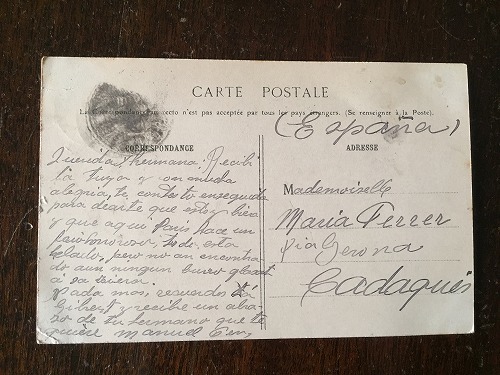 CARTE POSTALE
La Correspondance au recto n'est pas acceptée par tous les pays étrangers. (Se renseigner à la Poste).
(España)
CORRESPONDANCE
Querida Hermana: Recibi
la tuya y con mucha
alegria, te contesto enseguida
para decirte que estoy bien
y que aqui Paris hace un
frio horroroso, todo esta
helado, pero no an encontra
do aun ningun
a
nada mas, recuerdos a
Gibert y recibe un abra
zo de tu hermano que te
quiere Manuel
ADRESSE
Mademoiselle
Maria Ferrer
via Gerona
Cadaqués